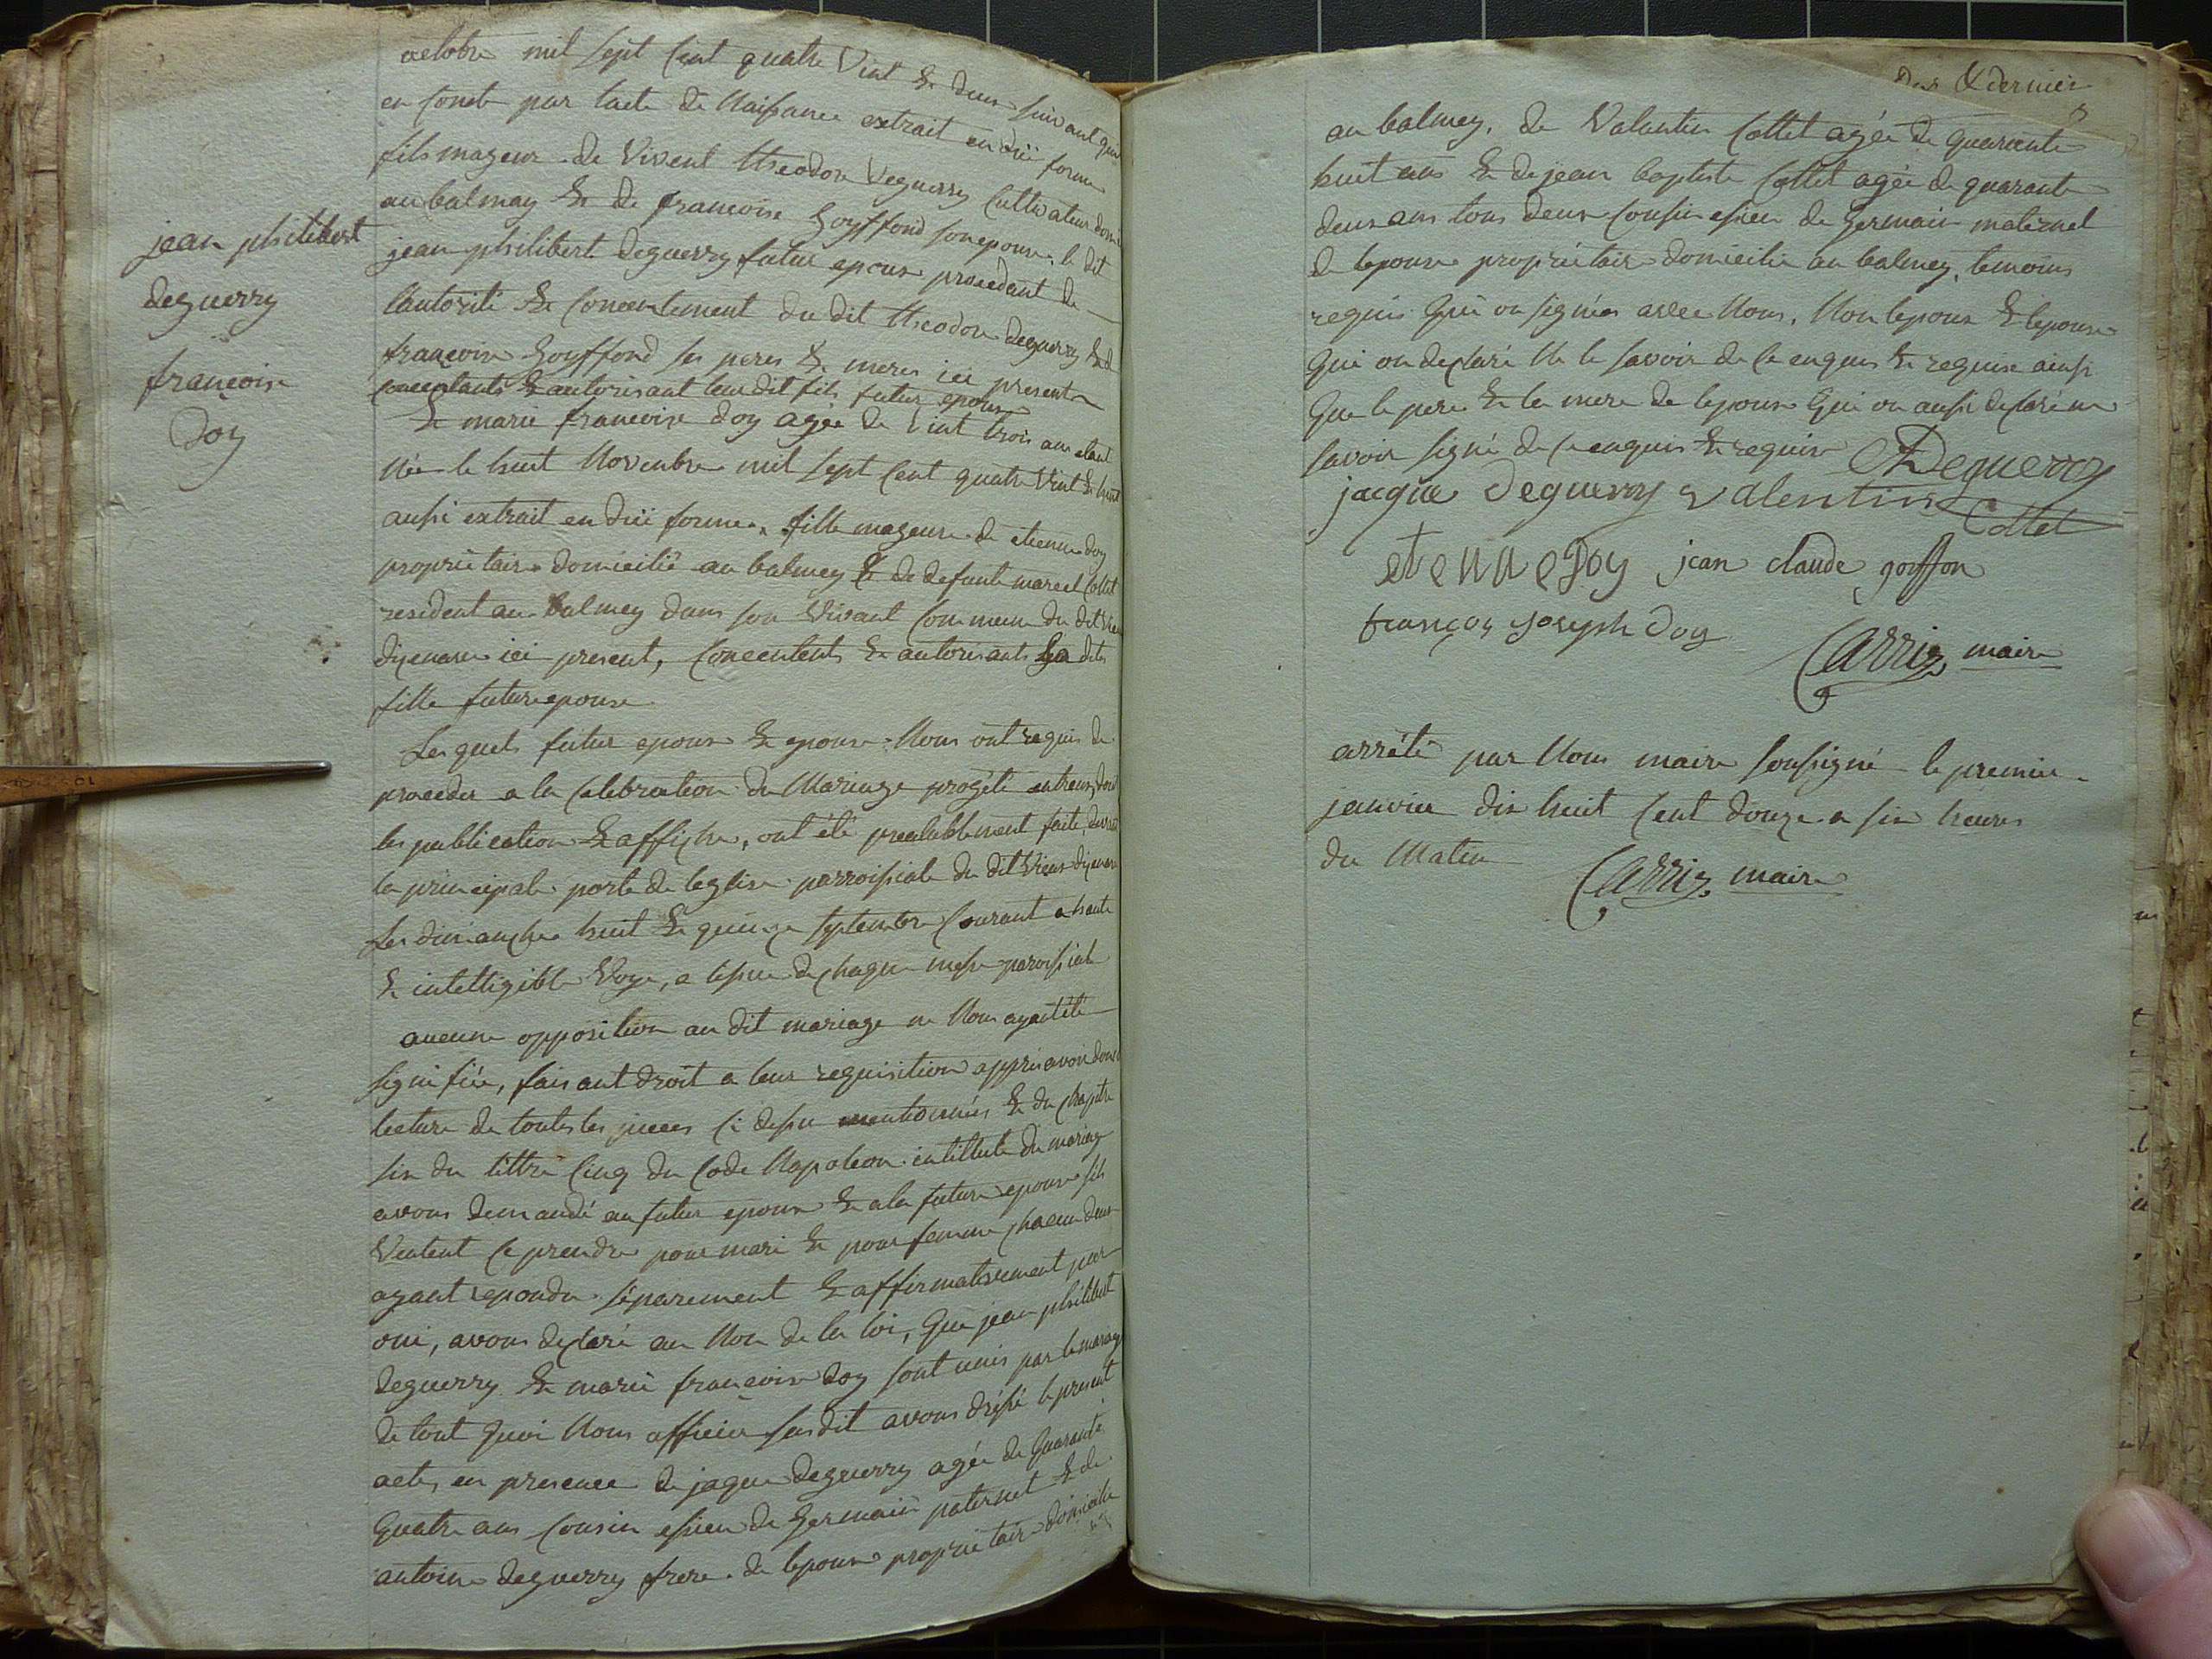 octobre mil sept cent quatre vint & deux suivant qui
en conste par lacte de Naissance extrait en düe forme
fils mageur de vivent theodore deguerry cultivateur domi
au balmay & de francoise goyffond son epouse, le dit
jean philibert deguerry futur epoux procedant de
lautorité & concentement du dit theodore deguerry & de
françoise goyffond ses peres & meres ici presents
concentants & autorisant leur dit fils futur epoux
jean philibert
deguerry
françoise
doy
& marie francoise doy agée de vint trois ans etant
Née le huit Novembre mil sept cent quatre vint & huit
aussi extrait en düe forme, fille mageure de etienne doy
proprietaire domicilié au balmey & de defunte marie Collet
resident au balmey dans son vivant commune du dit vieu
dizenave ici present, concentents & autorisants sa dite
fille future epouse
Lesquels futur epoux & epouse Nous ont requis de
proceder a la celebration du Mariage progété entreux, dont
les publication & affiche, ont été prealablement faite devant
la principale porte de leglise parroissiale du dit vieux dizenave
Les dimanche huit & quinze septembre courant a haute
& intelligible voye, a lissue de chaque messe paroissiale
aucune opposition au dit mariage ne Nous ayant été
signifiée, faisant droit a leur requisition appres avoir donné
lecture de toutes les pieces ci dessu mentionnées & du chapitre
six du tittre cinq du code Napoleon intittulé du mariage
avons demandé au futur epoux & a la future epouse sils
veulent ce prendre pour mari & pour femme chacun deux
ayant repondu séparement & affirmativement par
oui, avons declaré au Non de la loi, que jean philibert
deguerry & marie françoise doy sont unis par le mariage
de tout quoi Nous officier susdit avons dréssé le present
acte, en presence de jaque deguerry agée de quarante
quatre ans cousin issieu de germain paternel & de
antoine deguerry frere de lepoux proprietaire domicilié
& dernier
au balmey, de Valantin Collet agée de quarante
huit ans & de jean baptiste Collet agée de quarante
deux ans tous deux cousin issieu de germain maternel
de lepouse proprietaire domicilié au balmey, temoins
requis qui on signées avec Nous, Non lepoux & lepouse
qui on declaré Ne le savoir de ce enquis & requise ainsi
que le pere & la mere de lepoux qui on aussi declaré ne
savoir signé de ce enquis & requise
Deguerry
jacque deguerry valentin Collet
etienne Doy jean claude goiffon
françois joseph doy
Carriz, maire
arrété par Nous maire soussigné le premier
janvier dix huit cent douze a six heures
du Matin
Carriz, maire